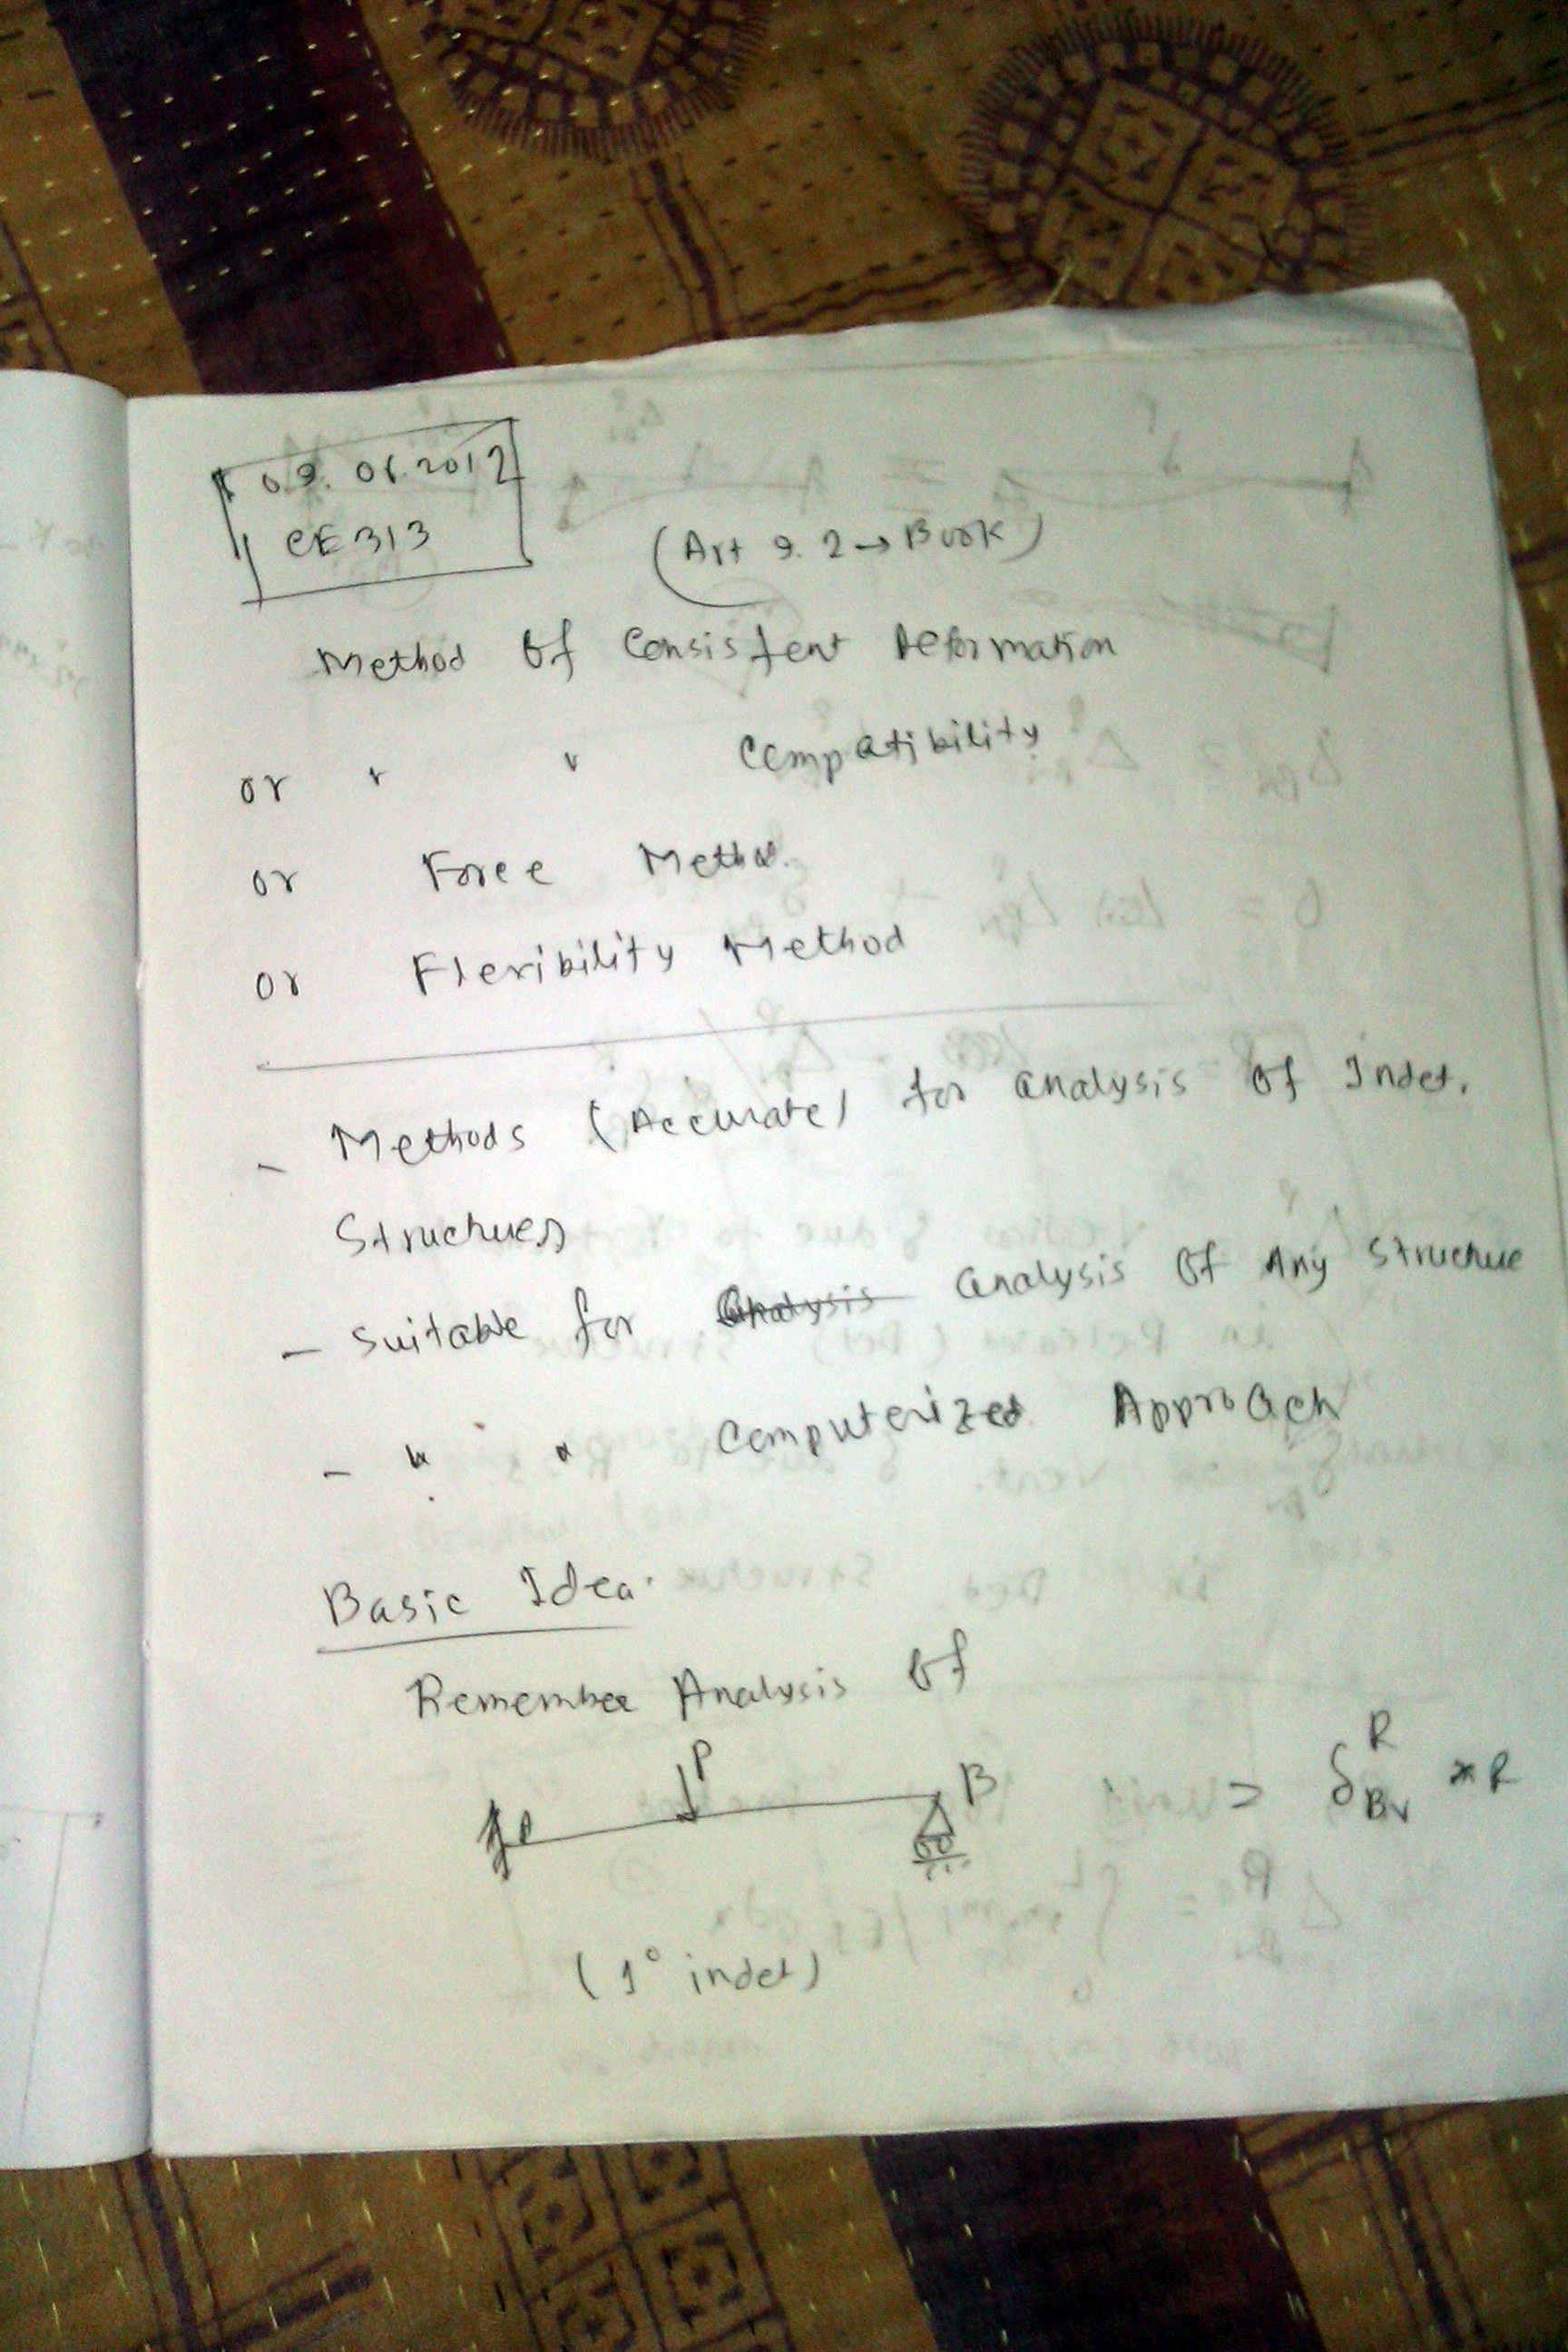 09.06.2012
CE 313
(Art 9.2 → Book)
Method Of Consistent Deformation
or " " Compatibility
or Force Method.
or Flexibility Method
- Methods (Accurate) for analysis of Indet.
Structures
- Suitable for Analysis analysis Of Any structure
- " " Computerized Approach
Basic Idea.
Remember Analysis Of
P
B
= δ R Bv * R
(1° indet)